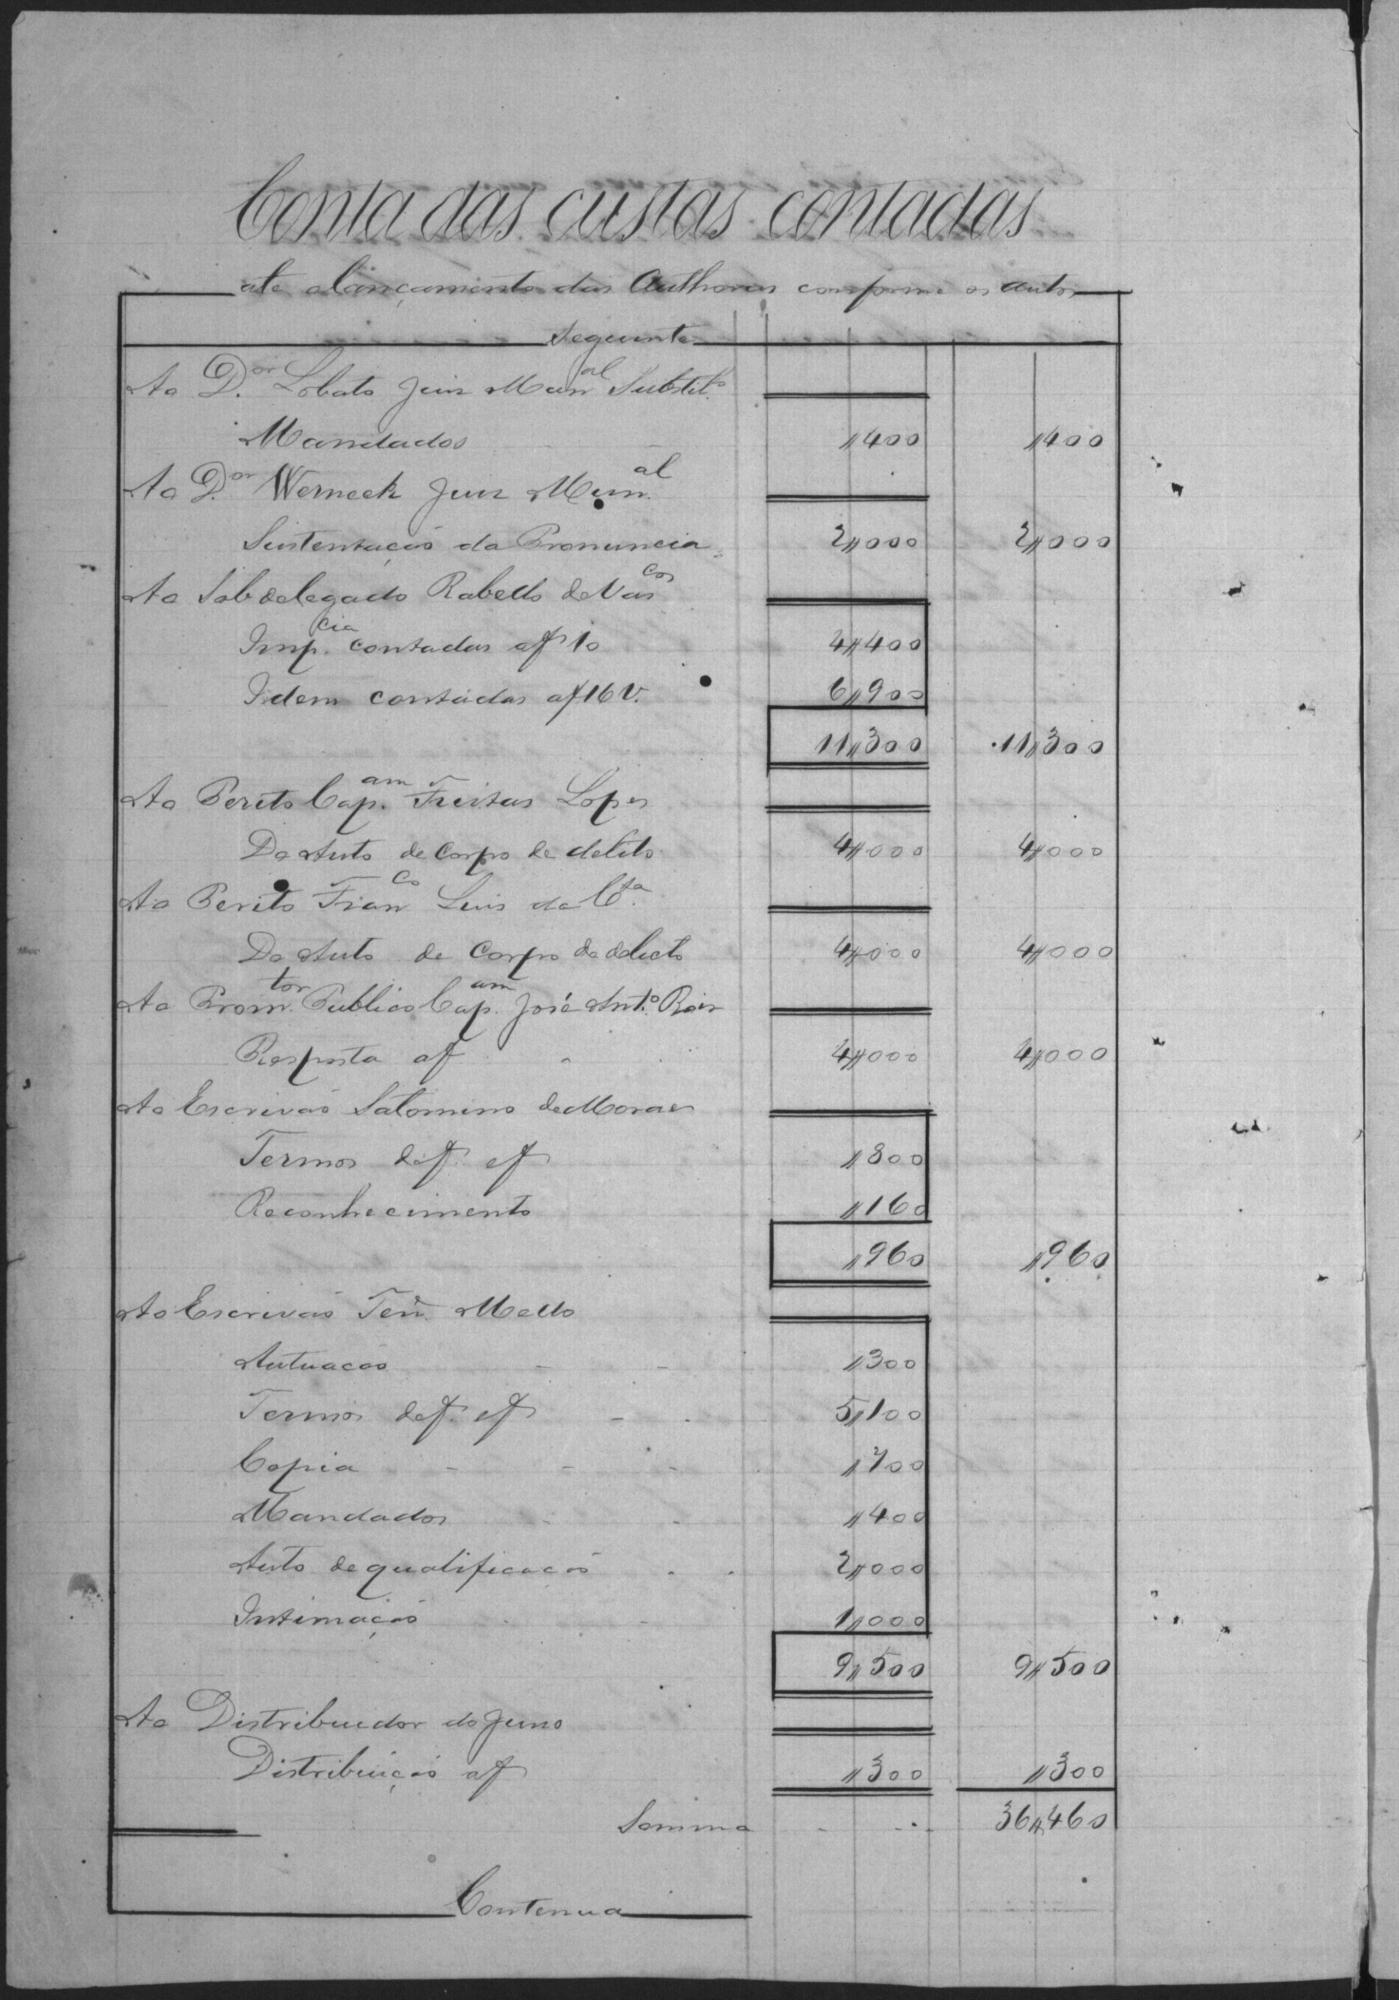 Conta das custas contadas
ate olançamento das Authores conforme os autos
Seguinte
Ao D.or Lobato Juiz Mun.al Substit.o
Mandados 1400 1400
Ao D.or Werneck Juiz Mun.al
Sustentação da Pronuncia 2,,000 2,,000
Ao Sobdelegado Rabello de Vas.cos
Imp.cia contadas af 10 4,,400
Idem contadas af 16 V. 6,,900
11,,300 11,,300
Ao Perito Cap.am Freitas Lopes
Do Auto de Corpo de delito 4,,000 4,,000
Ao Perito Fran.co Luis da C.ta
Do Auto de Corpo de delicto 4,,000 4,,000
Ao Prom.tor Publico Cap.am José Ant.o Reis
Resposta af 4,,000 4,,000
Ao Escrivaõ Salomino de Moraes
Termos def. af ,,800
Reconhecimento ,,160
,,960 ,,960
Ao Escrivaõ Ten.e Mello
Autuacao ,,300
Termos def. af 5,,100
Copia ,,700
Mandados ,,400
Auto de qualificacaõ 2,,000
Intimaçaõ 1,,000
9,,500 9,,500
Ao Distribuidor do Juizo
Distribuiçaõ af ,,300 ,,300
Somma 36,,460
Contenua